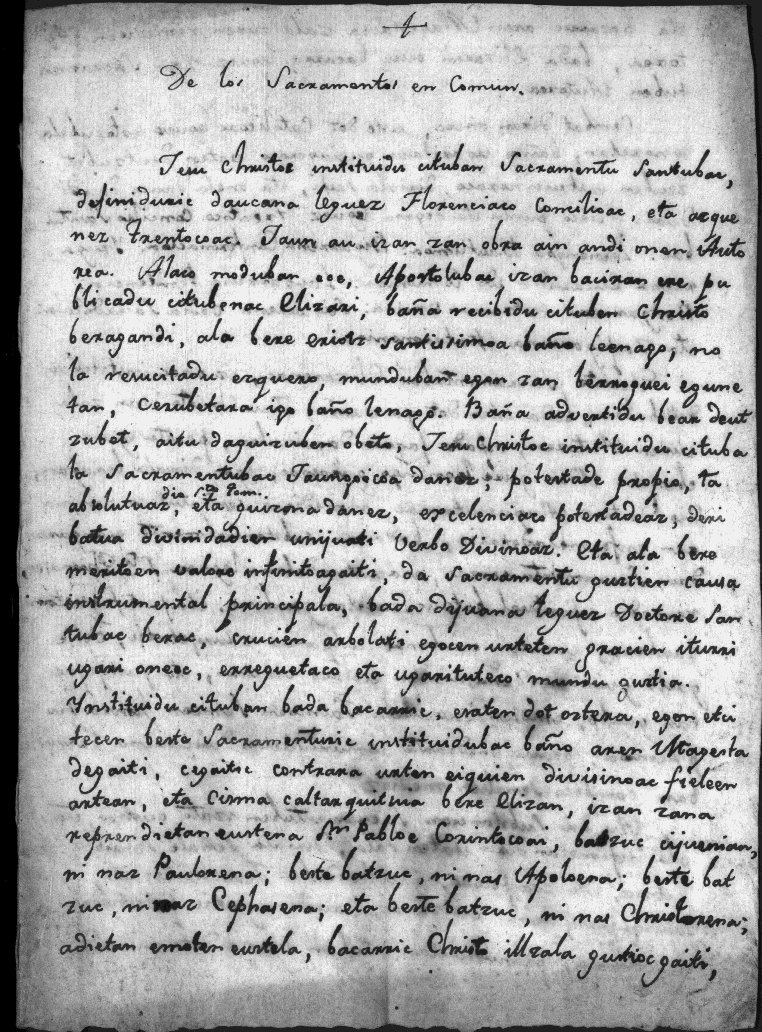 1
De los Sacramentos en Comun.
Jesu Christoc instituidu cituban Sacramentu Santubac,
definiduric daucana leguez Florenciaco Concilioac, eta azque
nez trentocoac. Jaun au izan zan obra ain andi onen Auto
rea. Alaco moduban ece, Apostolubac izan baciran ere pu
blicadu citubenac Elizari, baña recibidu cituben Christo
beragandi, ala bere eriotz santissimoa baño leenago, no
la resucitadu ezquero, munduban egon zan berroguei egune
tan, Cerubetara igo baño lenago. Baña advertidu bear deut
zubet, aitu daguizuben obeto, Jesu Christoc instituidu cituba
la Sacramentubac Jaungoicoa danez; potestade propio, ta
absolutuaz,
dio Sto Tom.
eta guizona danez, excelenciaco potestadeaz, deri
batua divinidadien unijuati Verbo Divinoaz. Eta ala bere
meritoen valore infinitoagaiti, da Sacramentu guztien causa
instrumental principala, bada dijuana leguez Doctore San
tubac berac, crucien arbolati egocen urteten gracien iturri
ugari oneec, erreguetaco eta ugarituteco mundu guztia.
Ynstituidu cituban bada bacarric, esaten dot ostera, egon etci
tecen beste Sacramenturic instituidubac baño aren Magesta
degaiti, cegaitic contrara urten eiquien divisinoac fieleen
artean, eta Cisma caltarquitsua bere Elizan, izan zana
reprendietan eustena Sn Pabloc Corintocoai, batzuc cijuenian,
ni naz Paulorena; beste batzuc, ni nas Apoloena; beste bat
zuc, ni naz Cephasena; eta beste batzuc, ni nas Christorena;
adietan emoten eustela, bacarric Christo illzala guztioc gaiti,